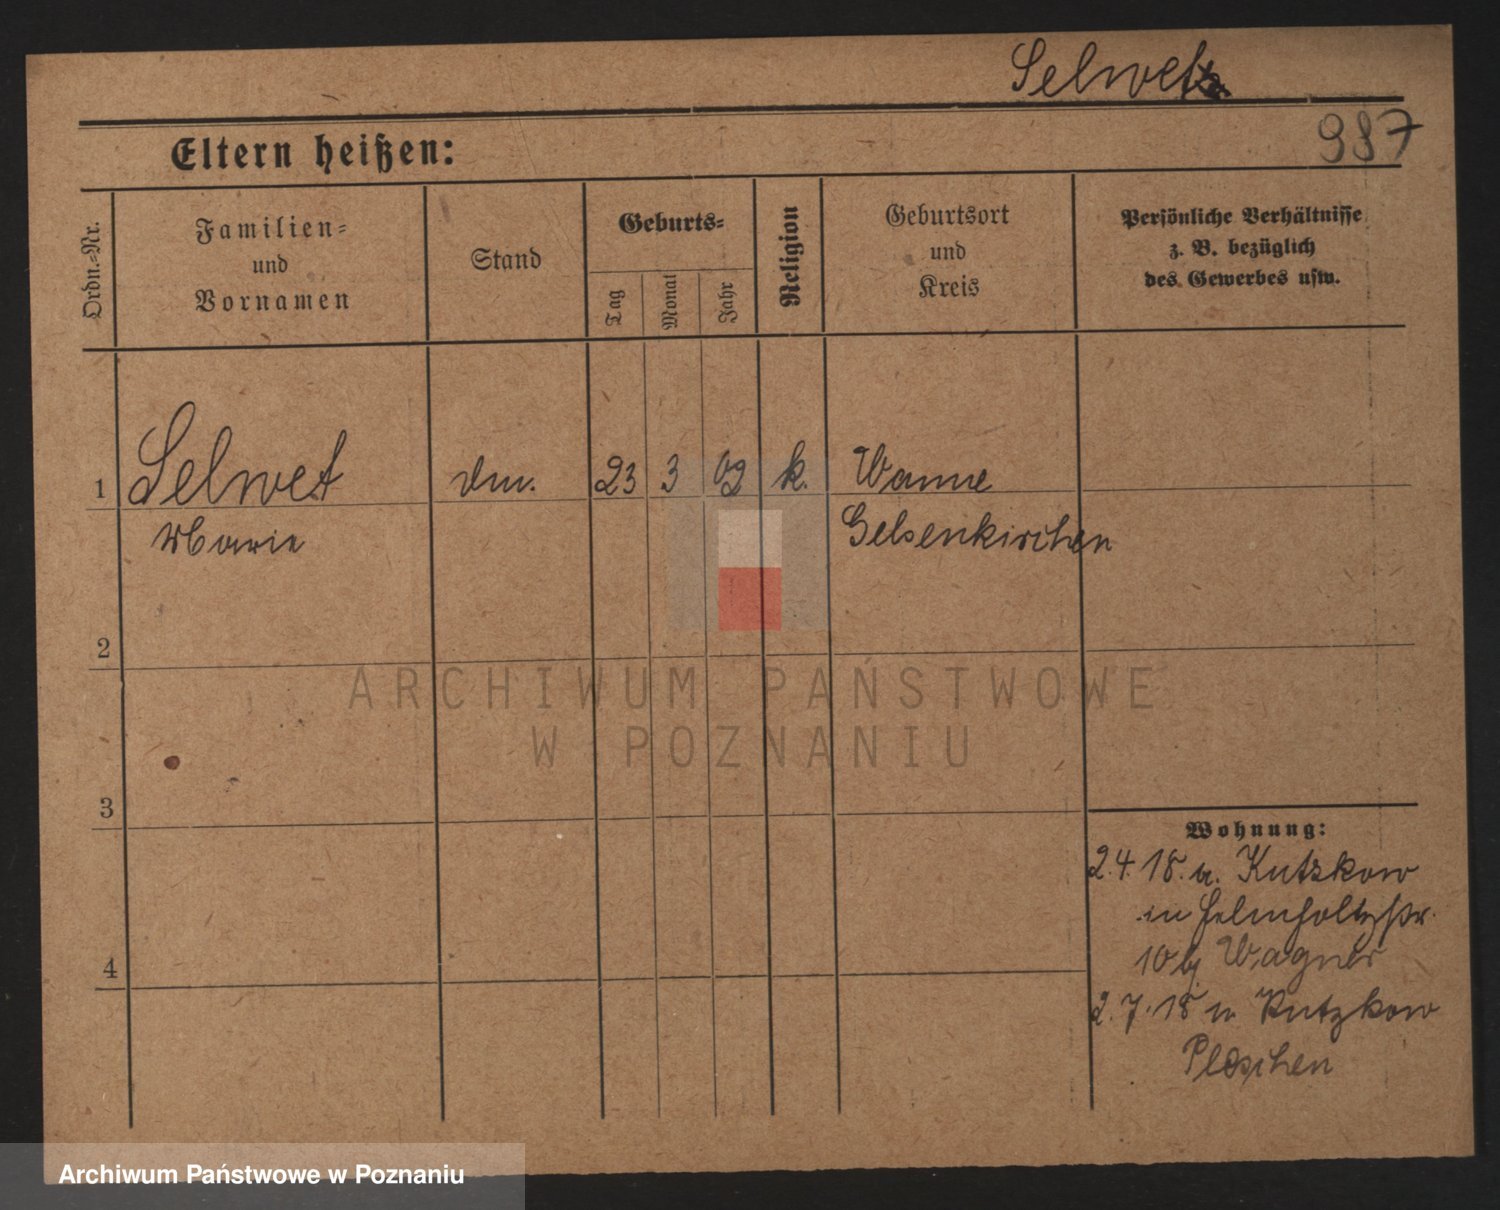 Selwet
987
Eltern heißen:
Ordn.-Nr.
Familien-
und
Vornamen
Stand
Geburts-
Tag
Monat
Jahr
Religion
Geburtsort
und
Kreis
Persönliche Verhältnisse
z. B. bezüglich
des Gewerbes usw.
1 Selwet 23 3 02 k. Wanne
Marie Gelsenkirchen
2
3
4
Wohnung:
2.4.18. Kutzkow
in Helmholtzstr.
10 bj Wagner
2.7.18 Kutzkow
Pleschen
ARCHIWUM PAŃSTWOWE
W POZNANIU
Archiwum Państwowe w Poznaniu